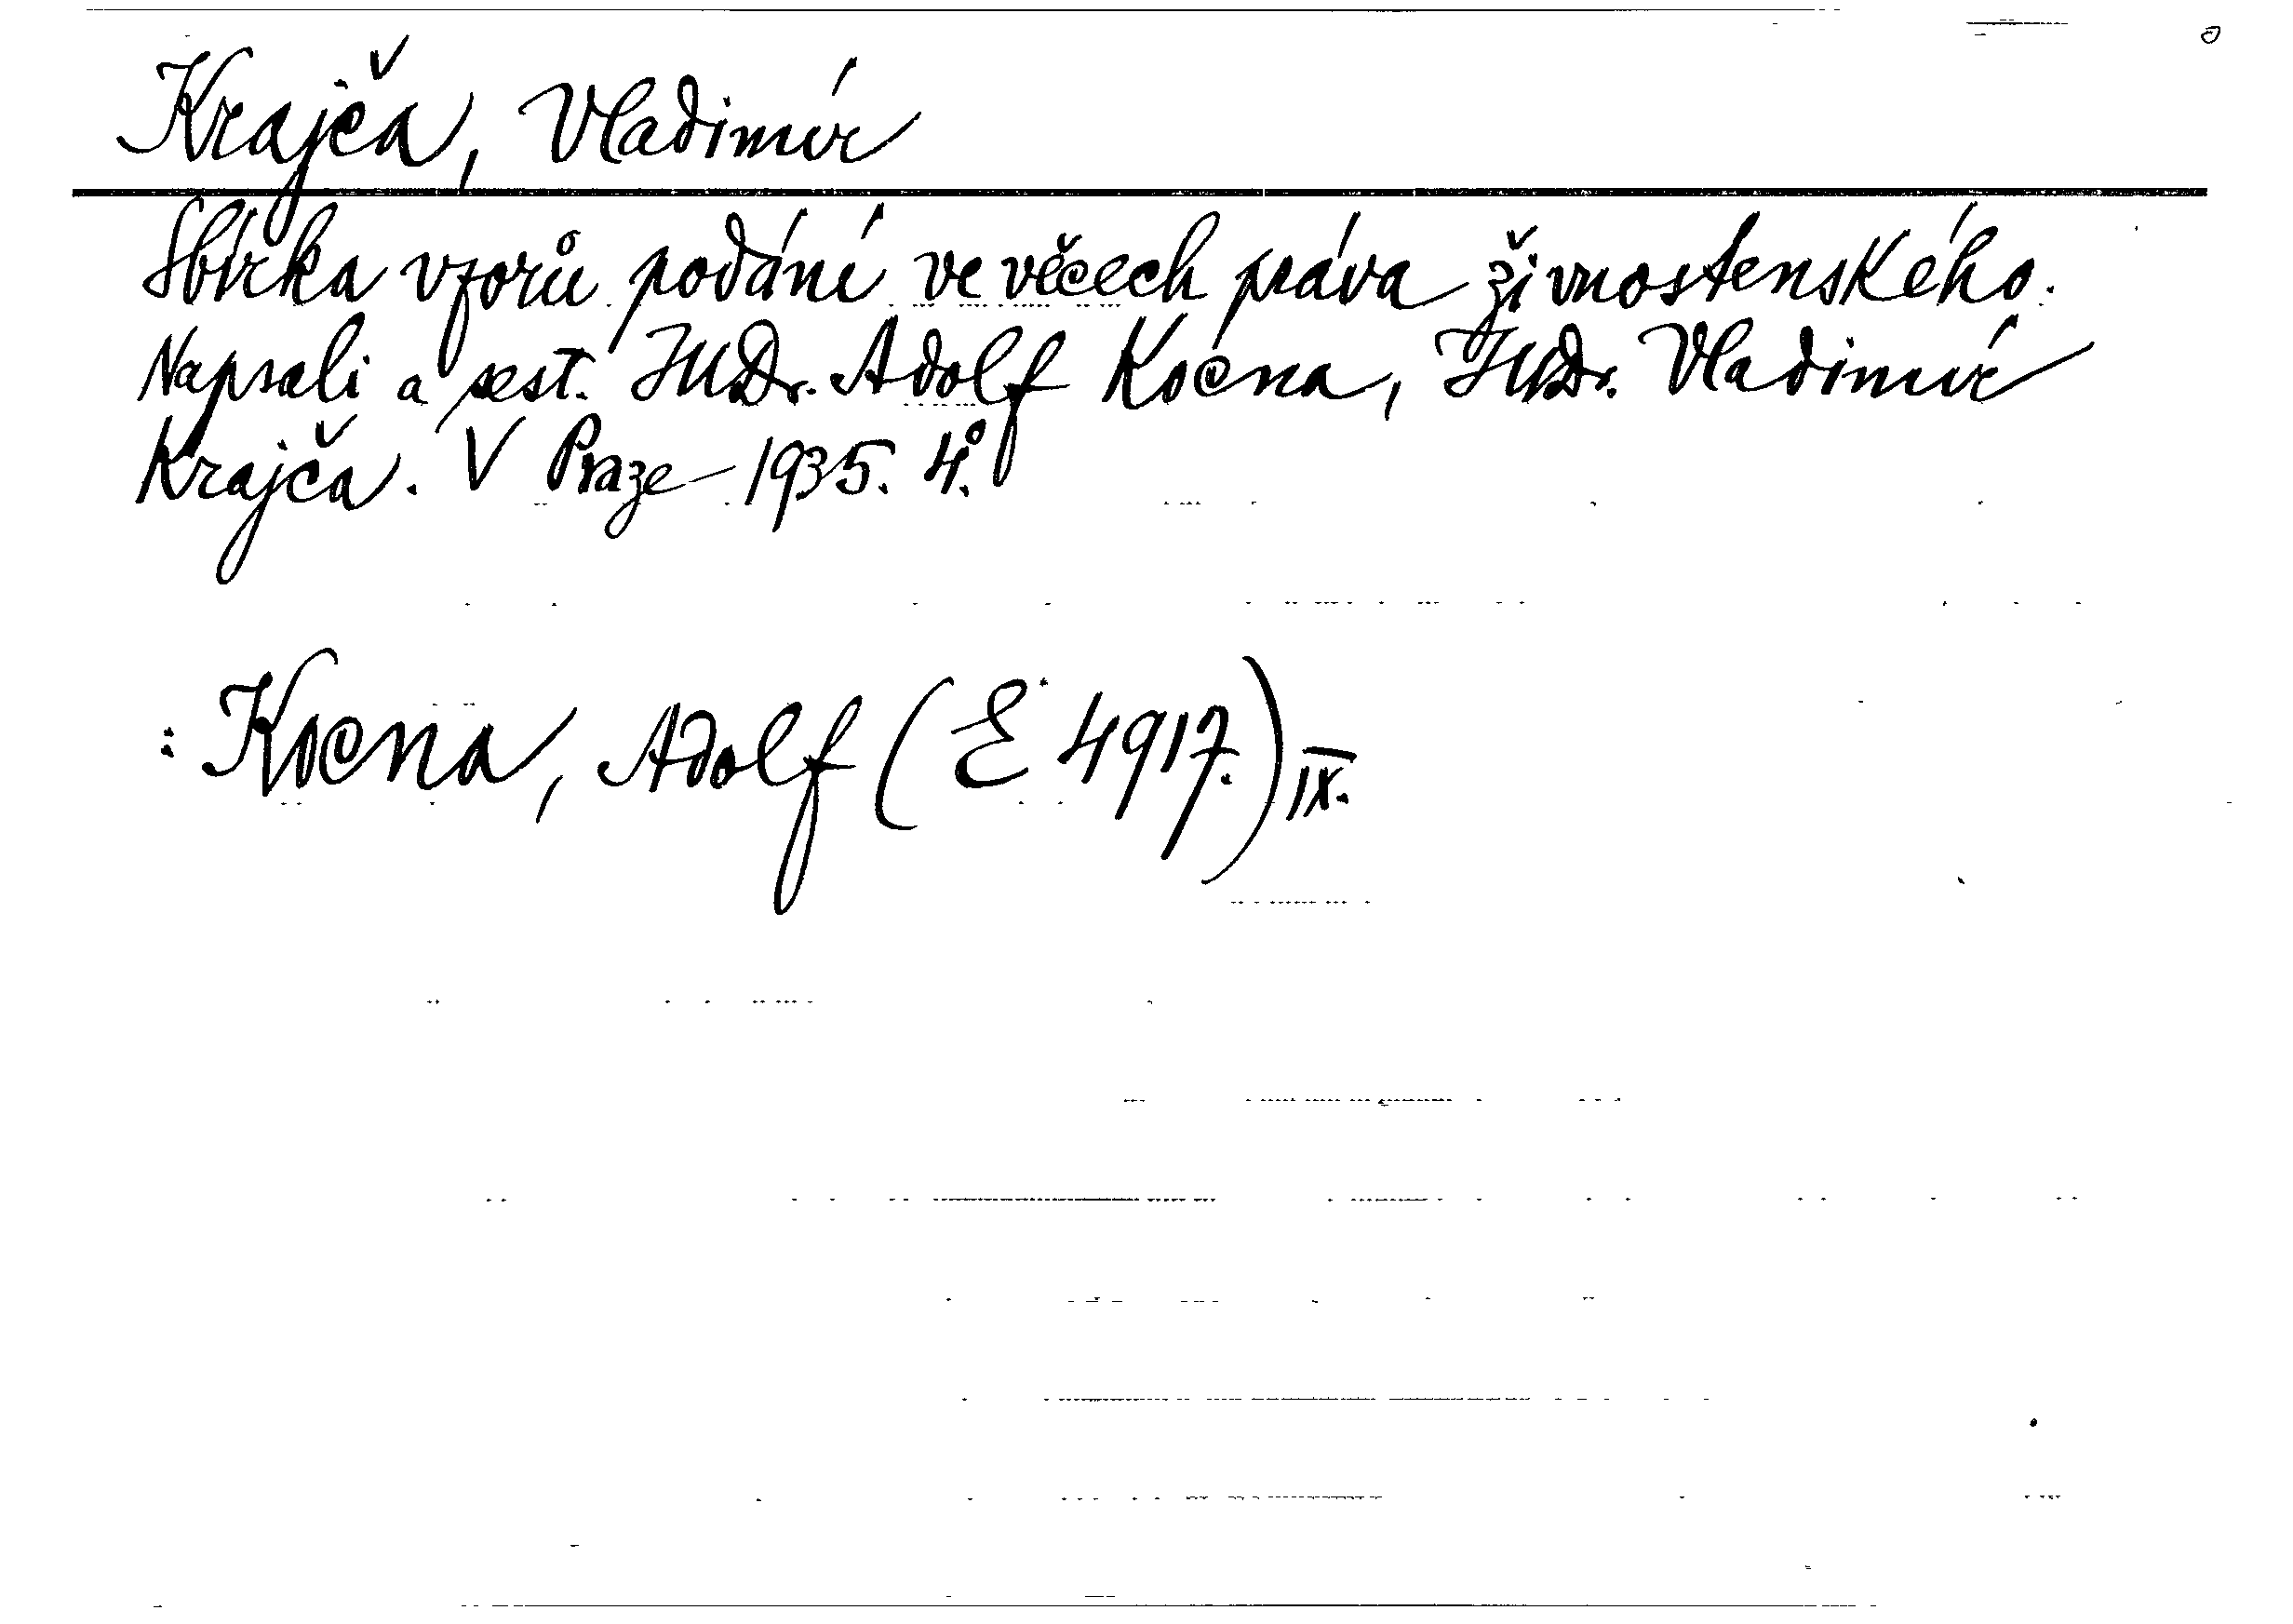 Krajča, Vladimír
Sbírka vzorů podání ve věcech práva živnostenského.
Napsali a sest. JUDr. Adolf Kocna, JUDr. Vladimír
Krajča. V Praze 1935. 4°.
: Kocna, Adolf (E 4917.) IX.